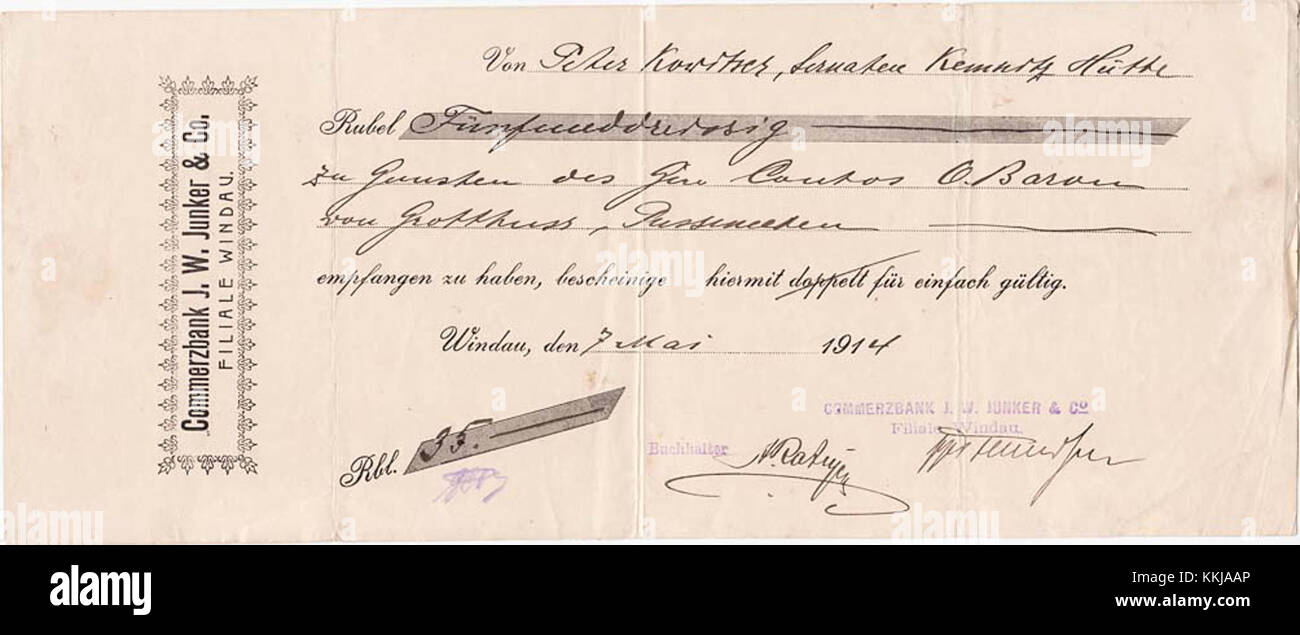 Commerzbank J. W. Junker & Co.
FILIALE WINDAU.
Von Peter Kowitzer, Kemnitz Hütte
Rubel Fünfunddreissig
zu Gunsten des Giro Contos O. Baron
von Grotthuss,
empfangen zu haben, bescheinige hiermit doppelt für einfach gültig.
Windau, den 7 Mai 1914
Rbl. 35.
COMMERZBANK J. W. JUNKER & Co
Filiale Windau.
Buchhalter
alamy stock photo
alamy
KKJAAP
www.alamy.com